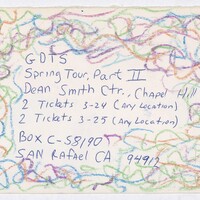 GDTS
Spring Tour, Part II
Dean Smith Ctr., Chapel Hill
2 Tickets 3-24 (Any Location)
2 Tickets 3-25 (Any Location)
Box C-S8190
SAN RafaEl CA 94912